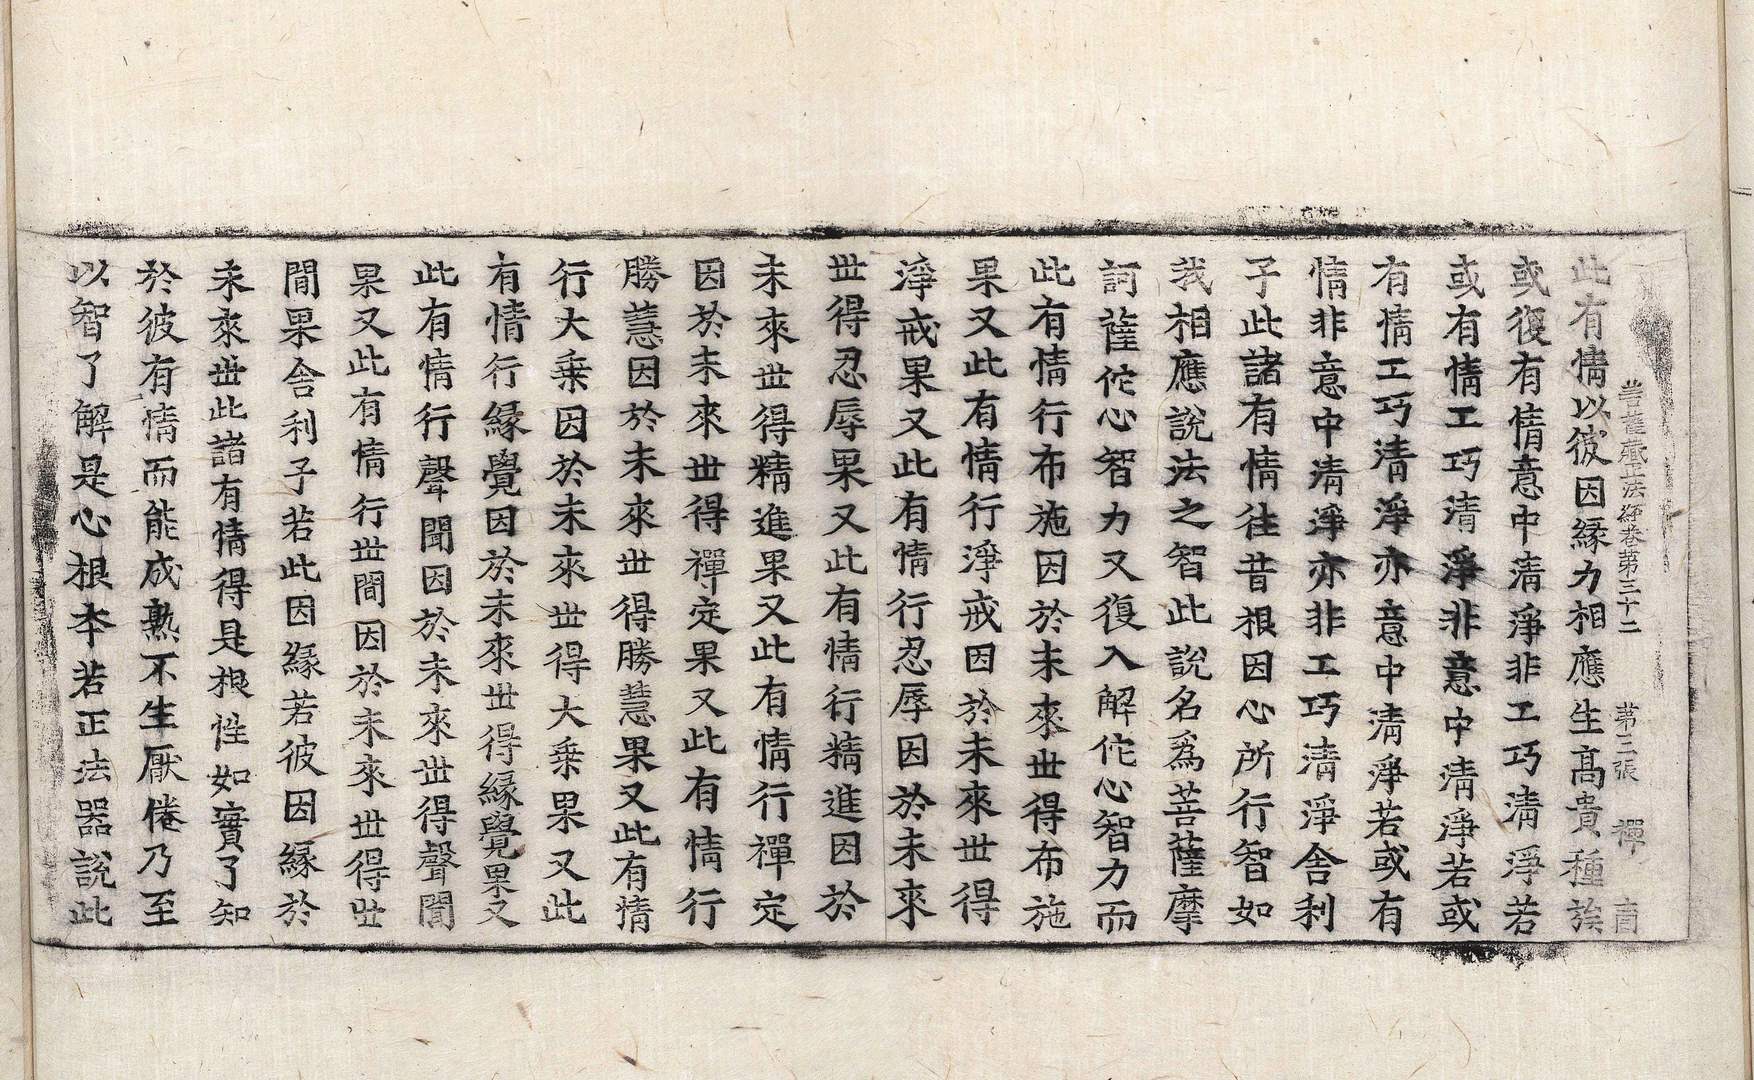 菩薩藏正法經卷第三十二 第二張 禪
此有情以彼因緣力相應生高貴種族
或復有情意中清淨非工巧清淨若
或有情工巧清淨非意中清淨若或
有情工巧清淨亦意中清淨若或有
情非意中清淨亦非工巧清淨舍利
子此諸有情往昔根因心所行智如
我相應說法之智此說名為菩薩摩
訶薩佗心智力又復入解佗心智力而
此有情行布施因於未來世得布施
果又此有情行淨戒因於未來世得
淨戒果又此有情行忍辱因於未來
世得忍辱果又此有情行精進因於
未來世得精進果又此有情行禪定
因於未來世得禪定果又此有情行
勝慧因於未來世得勝慧果又此有情
行大乗因於未來世得大乗果又此
有情行緣覺因於未來世得緣覺果又
此有情行聲聞因於未來世得聲聞
果又此有情行世間因於未來世得世
間果舍利子若此因緣若彼因緣於
未來世此諸有情得是根性如實了知
於彼有情而能成熟不生厭倦乃至
以智了解是心根本若正法器說此